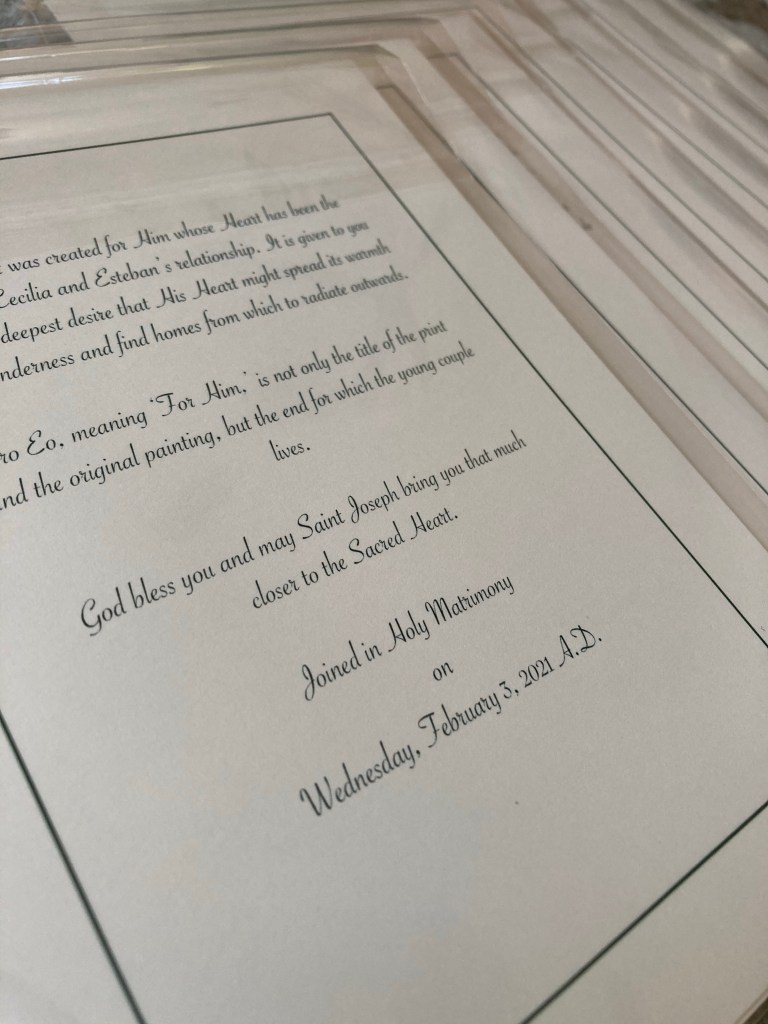 was created for Him whose Heart has been the
Cecilia and Esteban's relationship. It is given to you
deepest desire that His Heart might spread its warmth
and find homes from which to radiate outwards.
Eo, meaning 'For Him,' is not only the title of the print
the original painting, but the end for which the young couple
lives.
God bless you and may Saint Joseph bring you that much
closer to the Sacred Heart.
Joined in Holy Matrimony
on
Wednesday, February 3, 2021 A.D.